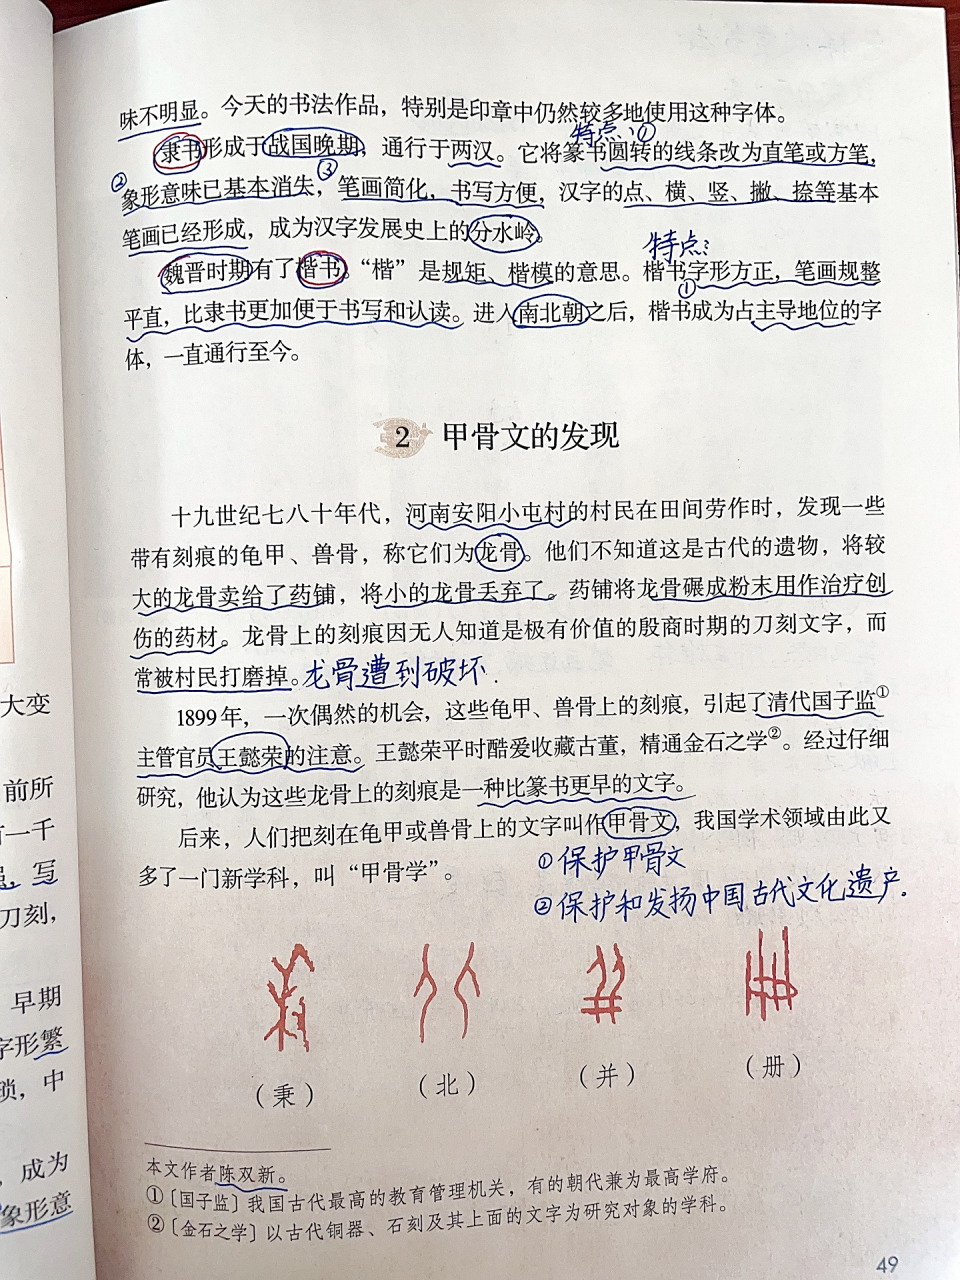 味不明显。今天的书法作品，特别是印章中仍然较多地使用这种字体。
特点：①
隶书形成于战国晚期，通行于两汉。它将篆书圆转的线条改为直笔或方笔，
② ③
象形意味已基本消失，笔画简化，书写方便，汉字的点、横、竖、撇、捺等基本
笔画已经形成，成为汉字发展史上的分水岭。
特点：
魏晋时期有了楷书。“楷”是规矩、楷模的意思。楷书字形方正，笔画规整
①
平直，比隶书更加便于书写和认读。进入南北朝之后，楷书成为占主导地位的字
体，一直通行至今。
2 甲骨文的发现
十九世纪七八十年代，河南安阳小屯村的村民在田间劳作时，发现一些
带有刻痕的龟甲、兽骨，称它们为龙骨。他们不知道这是古代的遗物，将较
大的龙骨卖给了药铺，将小的龙骨丢弃了。药铺将龙骨碾成粉末用作治疗创
伤的药材。龙骨上的刻痕因无人知道是极有价值的殷商时期的刀刻文字，而
常被村民打磨掉。龙骨遭到破坏．
1899年，一次偶然的机会，这些龟甲、兽骨上的刻痕，引起了清代国子监①
主管官员王懿荣的注意。王懿荣平时酷爱收藏古董，精通金石之学②。经过仔细
研究，他认为这些龙骨上的刻痕是一种比篆书更早的文字。
后来，人们把刻在龟甲或兽骨上的文字叫作甲骨文，我国学术领域由此又
多了一门新学科，叫“甲骨学”。
①保护甲骨文
②保护和发扬中国古代文化遗产．
（秉） （北） （并） （册）
本文作者陈双新。
①〔国子监〕我国古代最高的教育管理机关，有的朝代兼为最高学府。
②〔金石之学〕以古代铜器、石刻及其上面的文字为研究对象的学科。
49
大变
前所
一千
写
刀刻，
早期
字形繁
琐，中
，成为
象形意